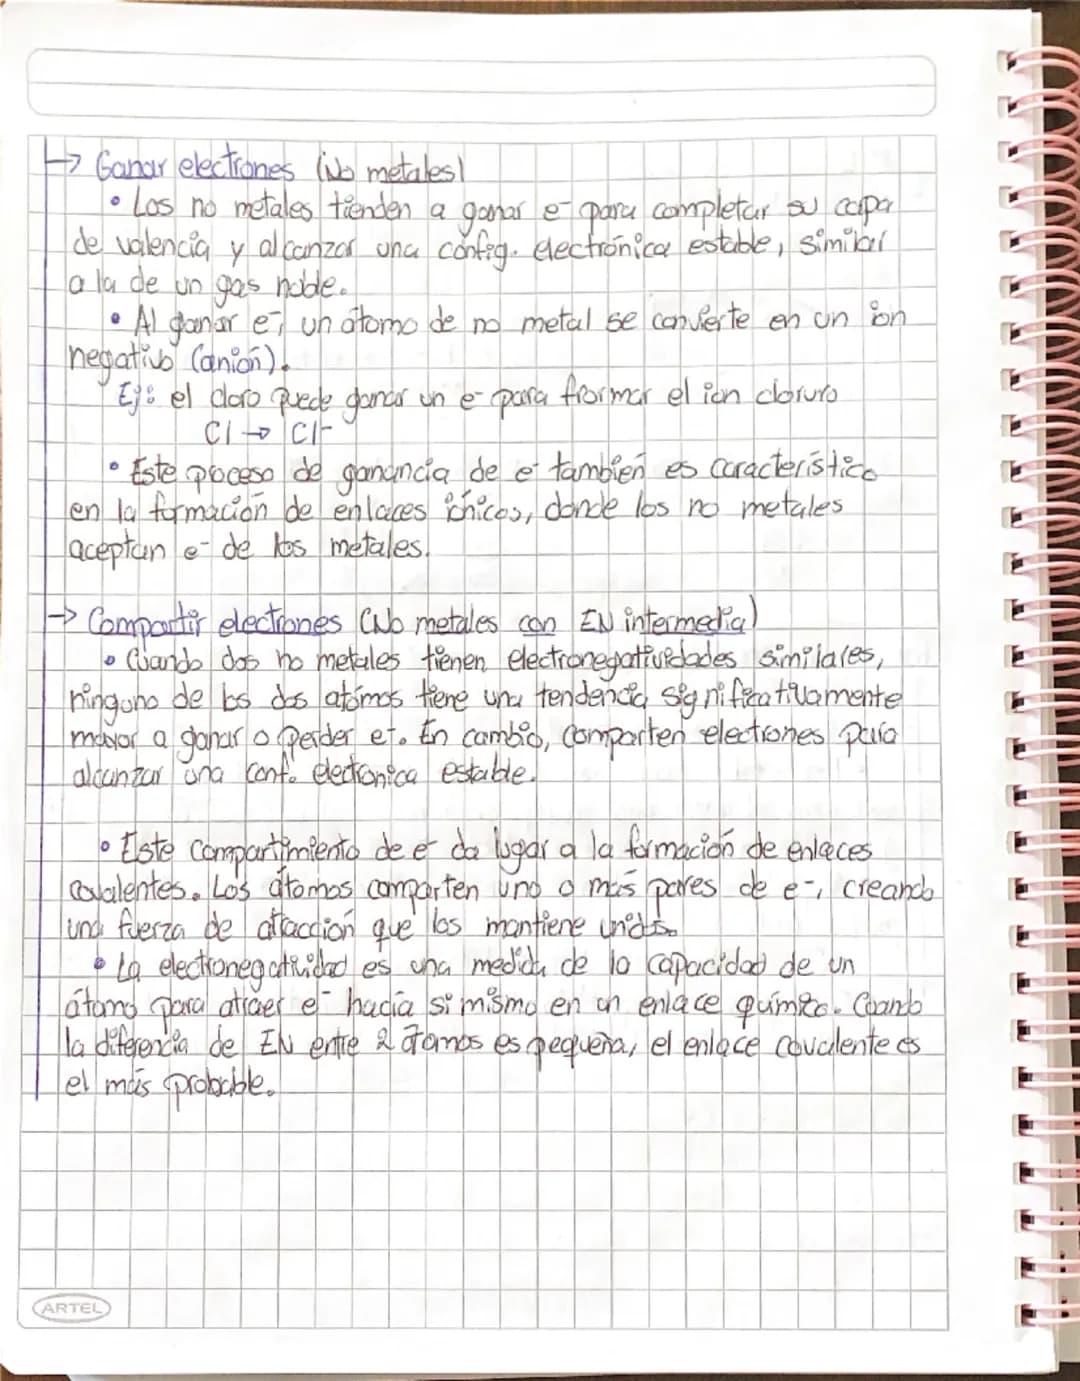 → Ganar electrones (No metales)
• Los no metales tienden a ganar e⁻ para completar su capa
de valencia y alcanzar una config. electrónica estable, similar
a la de un gas noble.
• Al ganar e⁻, un átomo de no metal se convierte en un ion
negativo (anión).
Ej: el cloro puede ganar un e⁻ para frormar el ion cloruro
Cl → Cl⁻
• Este proceso de ganancia de e⁻ también es característico
en la formación de enlaces iónicos, donde los no metales
aceptan e⁻ de los metales.
→ Compartir electrones (No metales con EN intermedia)
• Cuando dos no metales tienen electronegatividades similares,
ninguno de los dos átomos tiene una tendencia significativamente
mayor a ganar o perder e⁻. En cambio, comparten electrones para
alcanzar una conf. electronica estable.
• Este compartimiento de e⁻ da lugar a la formación de enlaces
covalentes. Los átomos comparten uno o más pares de e⁻, creando
una fuerza de atracción que los mantiene unidos.
• La electronegatividad es una medida de la capacidad de un
átomo para atraer e⁻ hacia si mismo en un enlace químico. Cuando
la diferencia de EN entre 2 átomos es pequeña, el enlace covalente es
el más probable.
ARTEL